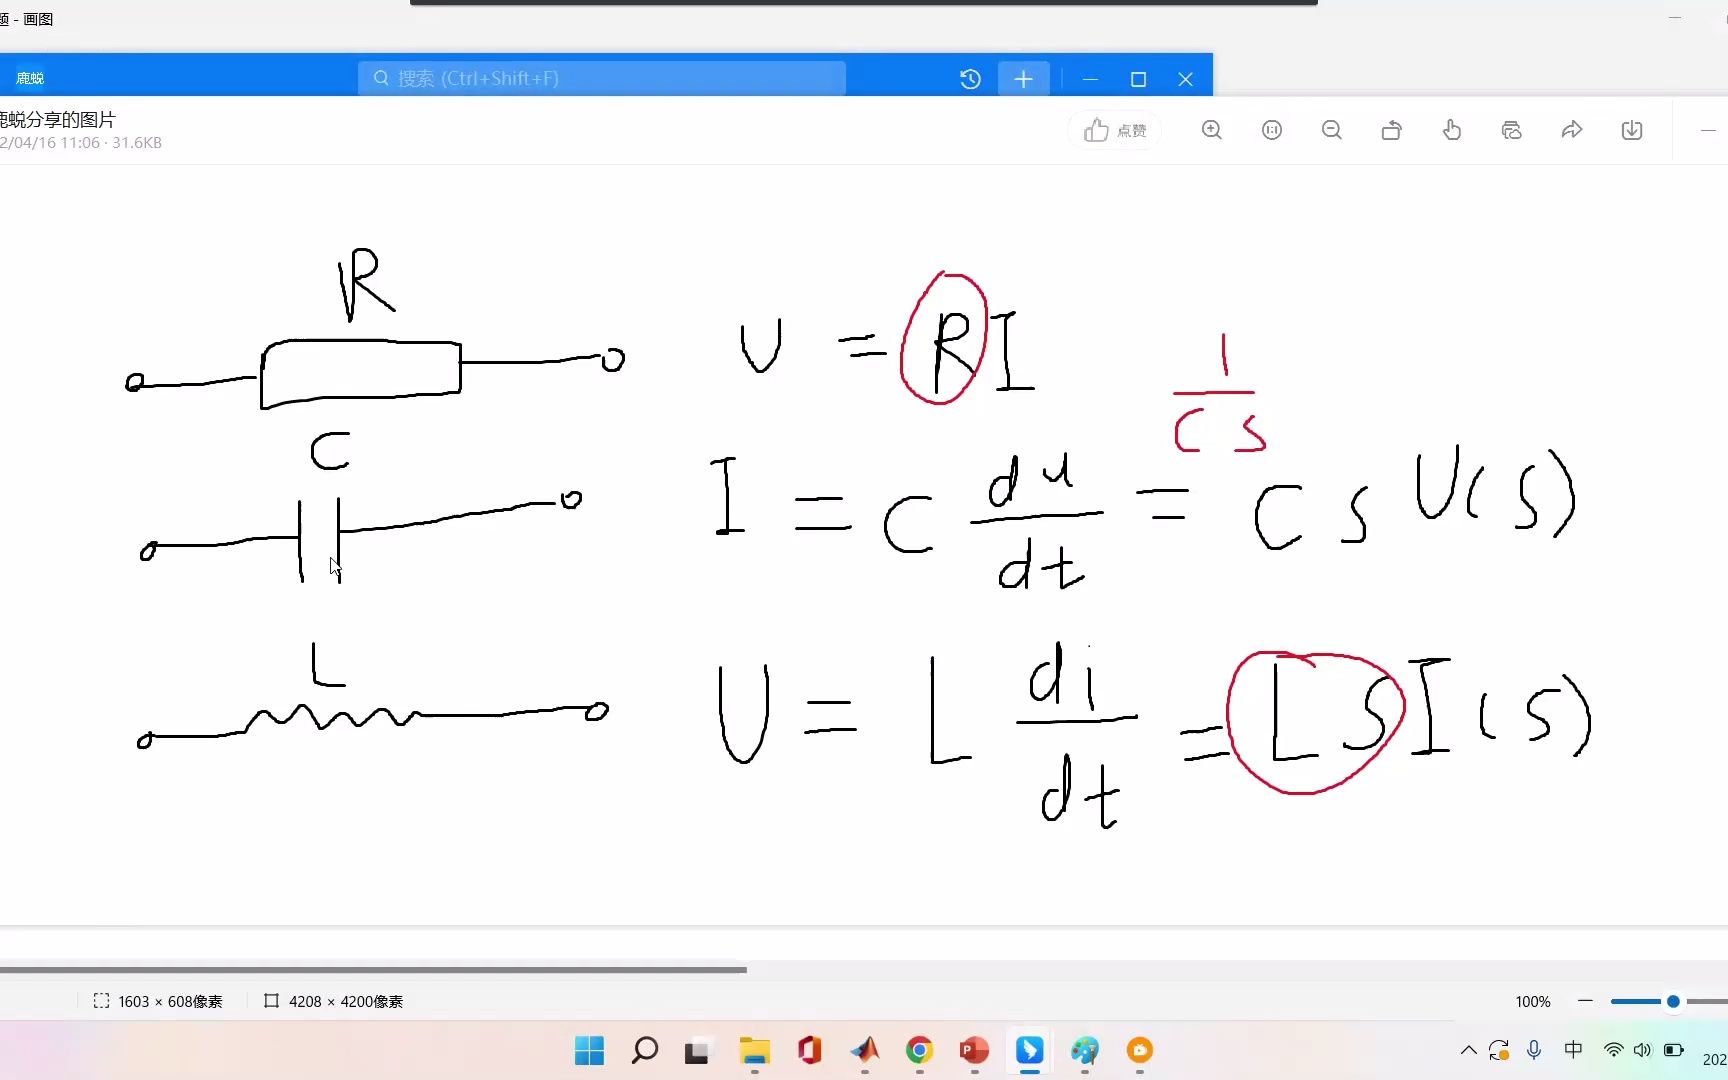 题 - 画图
鹿蜕
搜索 (Ctrl+Shift+F)
鹿蜕分享的图片
2/04/16 11:06 · 31.6KB
点赞
1:1
R
U = RI
1
C s
C
I = C du/dt = C s U(s)
L
U = L di/dt = L s I(s)
1603 × 608像素
4208 × 4200像素
100%
中
202